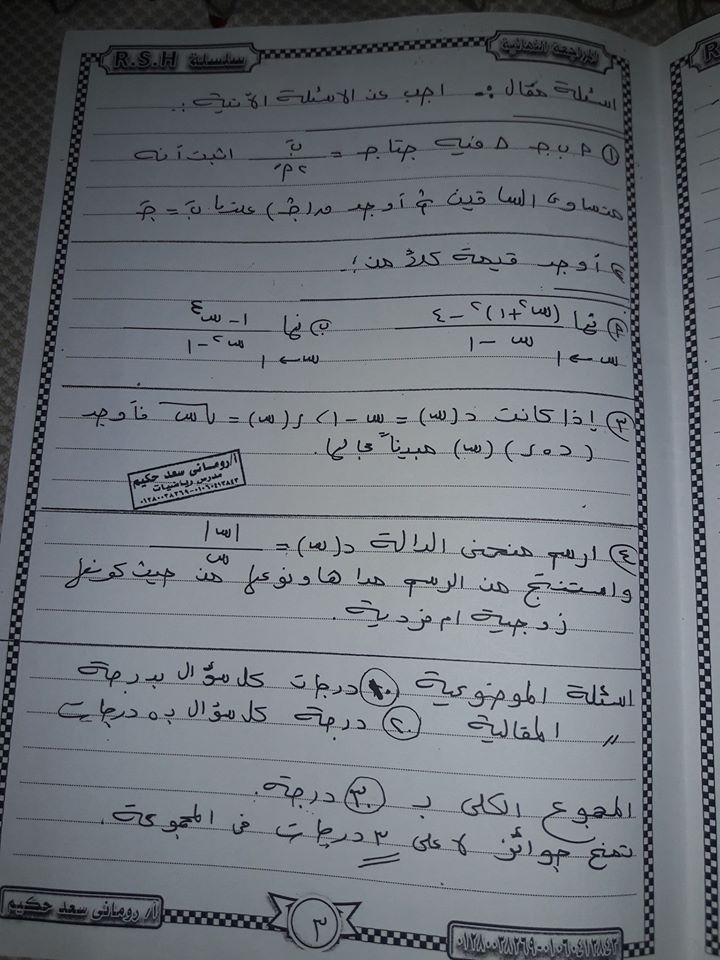 المراجعة النهائية
سلسلة R.S.H
اسئلة مقال :- اجب عن الاسئلة الآتية :-
① م ب ج Δ فيه جتا جـ = بَ / ٢ مَ اثبت أنه
متساوى الساقين ثم أوجد عندما بَ = جَ
٢ أوجد قيمة كلاً من :
م) نها (س٢+١)٢ - ٤ / س - ١ ب) نها ١ - س٤ / س٢ - ١
س ← ١ س ← ١
③ إذا كانت د(س) = س - ١ ، ر(س) = √س فأوجد
(د ∘ ر) (س) مبيناً مجالها.
أ/رومانى سعد حكيم
مدرس رياضيات
٠١٢٨٠٠٣٨٢٦٩-٠١٠٦٠٤١٢٨٤٣
④ ارسم منحنى الدالة د(س) = |س| / س
واستنتج من الرسم مداها ونوعها من حيث كونها
زوجية ام فردية .
اسئلة الموضوعية ١٠ درجات كل سؤال بدرجة
〃 المقالية ٢٠ درجة كل سؤال بـ ٥ درجات
المجموع الكلى بـ ٣٠ درجة.
تمنح جوائز لا على ٣ درجات فى المجموعة.
أ/ رومانى سعد حكيم
٣
٠١٢٨٠٠٣٨٢٦٩-٠١٠٦٠٤١٢٨٤٣